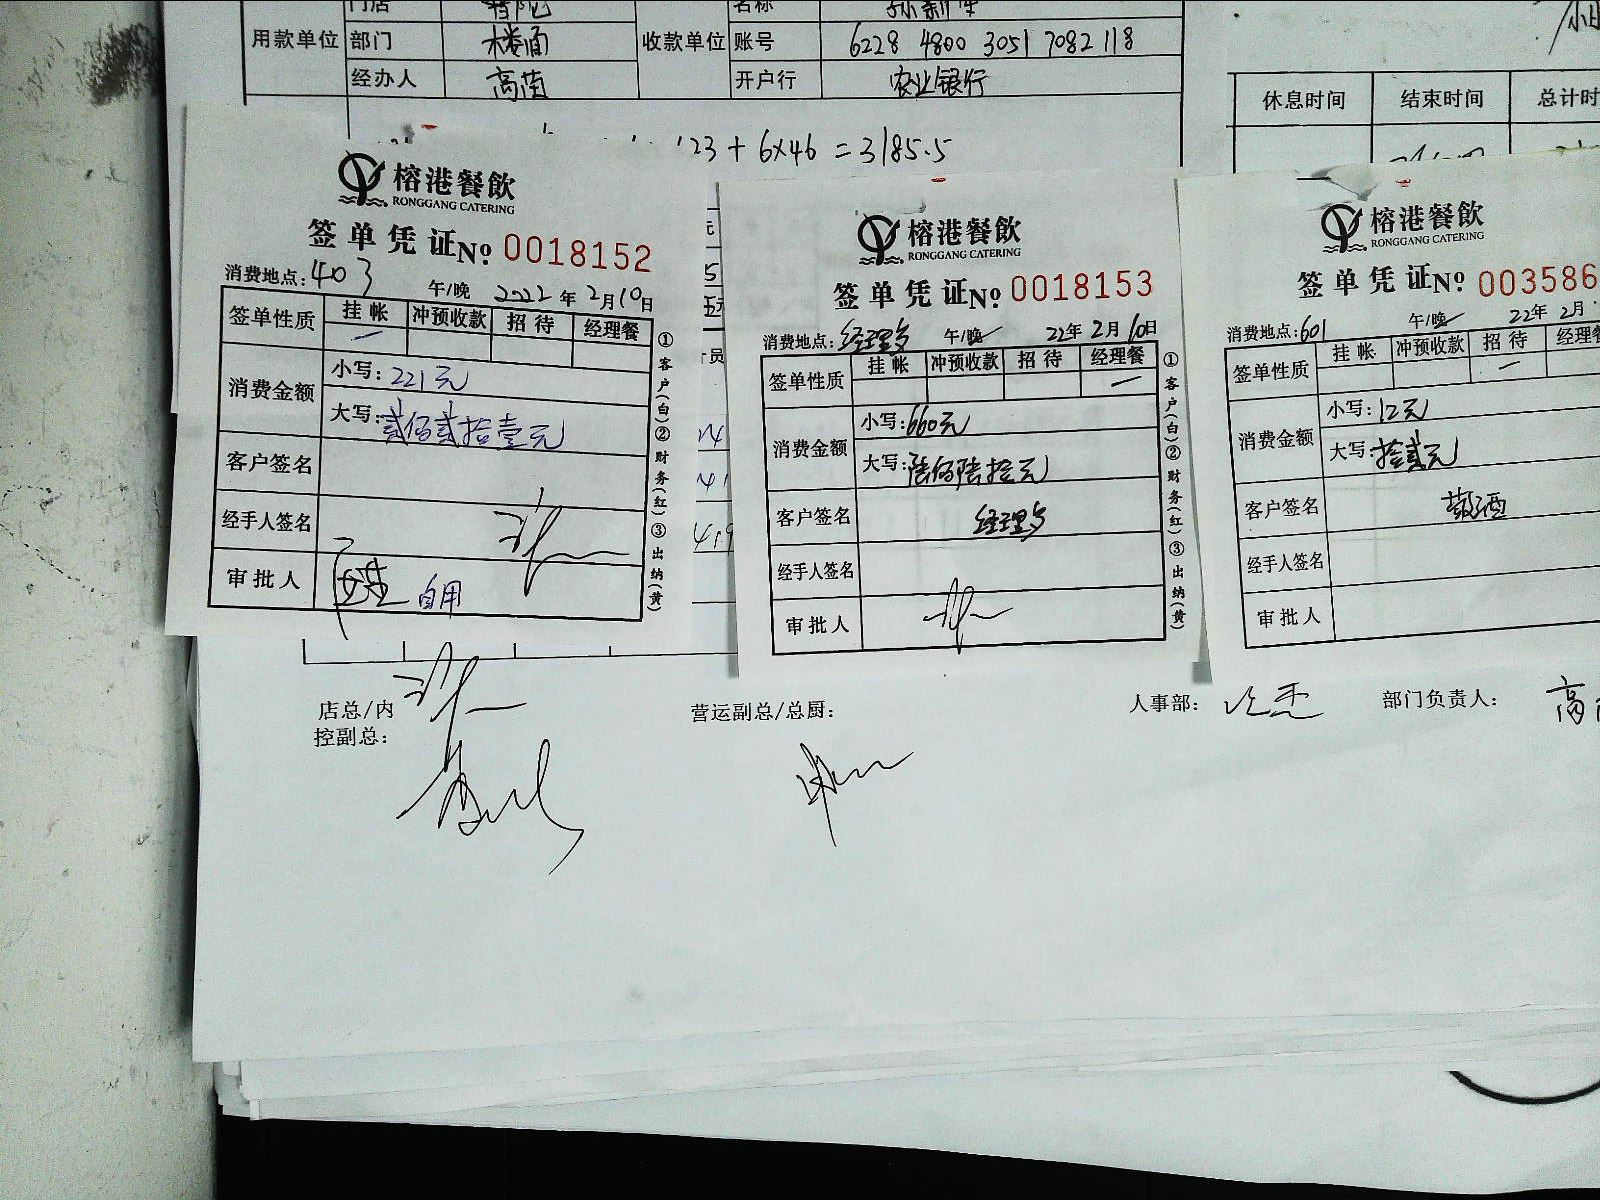 门店 普陀 名称
用款单位 部门 楼面 收款单位 账号 6228 4800 3051 7082 118
经办人 高苗 开户行 农业银行
休息时间 结束时间 总计时
23 + 6×46 = 3185.5
榕港餐飲
RONGGANG CATERING
签单凭证 No 0018152
消费地点:403 午/晚 2022年2月10日
签单性质 挂帐 冲预收款 招待 经理餐
消费金额 小写:221元
大写:贰佰贰拾壹元
客户签名
经手人签名
审批人 自用
①客户(白)②财务(红)③出纳(黄)
榕港餐飲
RONGGANG CATERING
签单凭证 No 0018153
消费地点:经理餐 午/晚 22年2月10日
签单性质 挂帐 冲预收款 招待 经理餐
消费金额 小写:660元
大写:陆佰陆拾元
客户签名 经理餐
经手人签名
审批人
①客户(白)②财务(红)③出纳(黄)
榕港餐飲
RONGGANG CATERING
签单凭证 No 003586
消费地点:601 午/晚 22年2月
签单性质 挂帐 冲预收款 招待 经理
消费金额 小写:12元
大写:拾贰元
客户签名
经手人签名
审批人
店总/内
控副总:
营运副总/总厨:
人事部:
部门负责人: 高